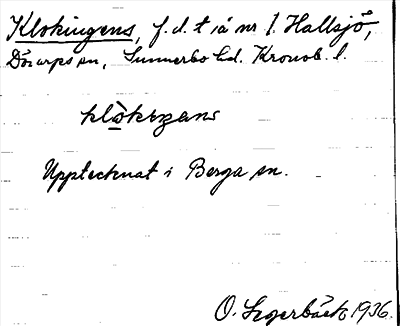 Klokingens, f. d. t iå nr 1. Hallsjö,
Dörarps sn, Sunnerbo hd. Kronob. l.
Upptecknat i Berga sn.
O. Segerbäck 1936.